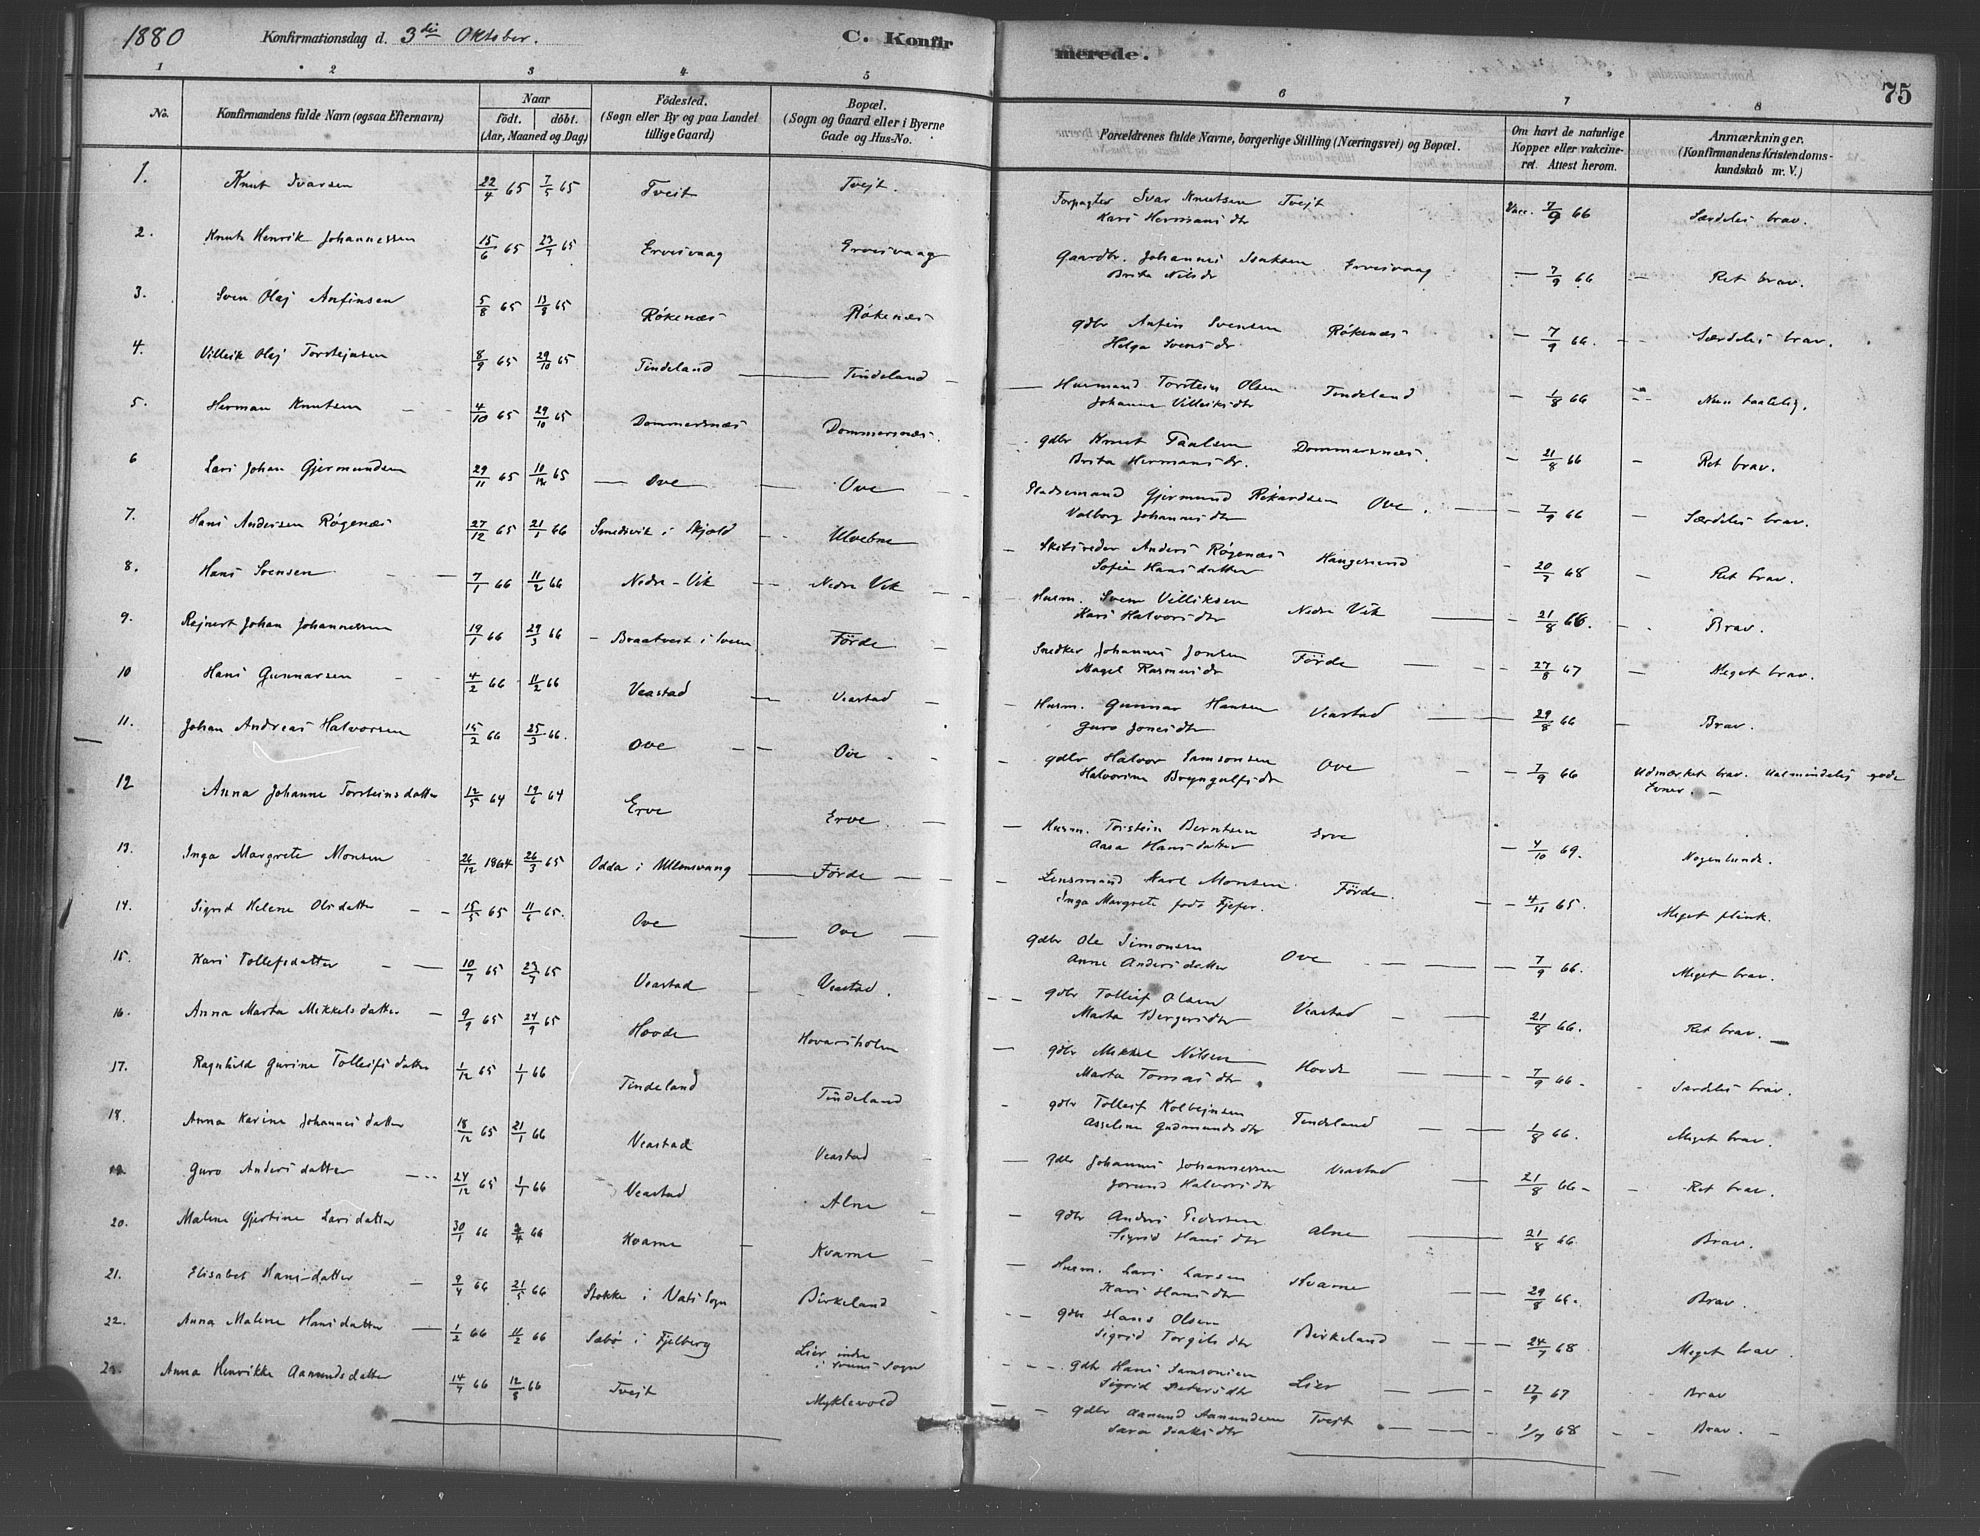 1880 Konfirmationsdag d. 3die Oktober. C. Konfirmerede. 75
1 2 3 4 5 6 7 8
No. Konfirmandens fulde Navn (ogsaa Efternavn) Naar født. døbt. (Aar, Maaned og Dag) Födested. (Sogn eller By og paa Landet tillige Gaard) Bopæl. (Sogn og Gaard eller i Byerne Gade og Hus-No. Forældrenes fulde Navne, borgerlige Stilling (Næringsvei) og Bopæl. Om havt de naturlige Kopper eller vakcineret. Attest herom. Anmærkninger. (Konfirmandens Kristendomskundskab m. V.)
1. Knut Ivarsen 22/4 65 7/5 65 Tveit Tvejt. Forpagter Ivar Knutsen Tvejt Kari Hermans dtr Vacc. 7/9 66 Særdeles brav.
2. Knut Henrik Johannessen 15/6 65 23/7 65 Ervesvaag Ervesvaag Gaardbr. Johannes Isaksen Ervesvaag Brita Nils dr — 7/9 66 — Ret brav.
3. Sven Olaj Anfinsen 5/8 65 13/8 65 Røkenæs Røkenæs gdbr Anfin Svensen Røkenæs Helga Svens dr. — 7/9 66. — Særdeles brav.
4. Villeik Olaj Torstejnsen 8/9 65 29/10 65 Tindeland — Tindeland — Husmand Torstein Olsen Tindeland Johanna Villeiks dtr — 1/8 66 Nun taalelig.
5. Herman Knutsen 4/10 65 29/10 65 Dommersnæs Dommersnæs. gdbr Knut Paalsen Dommersnæs. Brita Hermans dr. — 21/8 66 — Ret brav.
6 Lars Johan Gjermundsen 29/11 65 10/12 65 — Ove — Ove — Pladsemand Gjermund Rikardsen Ove. Valborg Johannes dtr — 7/9 66 — Særdeles brav.
7. Hans Andersen Røgenæs 27/12 65 21/1 66 Smedsvik i Skjold Ulvebne — Skibsreder Anders Røgenæs Haugesund Sofie Hansdatter — 20/7 68 — Ret brav.
8. Hans Svensen 7/1 66 11/2 66 Nedre-Vik — Nedre Vik — Husm. Sven Villiksen Nedre Vik Kari Halvors dtr — 21/8 66. — Brav.
9. Rejnert Johan Johannessen 19/1 66 29/3 66 — Braatvest i Sveen Förde — Snedker Johannes Jonsen Förde Magel Rasmus dr — 27/8 67 — Meget brav.
10 Hans Gunnarsen 4/2 66 11/2 66 Veastad — Veastad — Husm. Gunnar Hansen Veastad Guro Jones dtr — 29/8 66 — Brav.
11. Johan Andreas Halvorsen 15/2 66 25/3 66. Ove — Ove — gdbr Halvor Samsonsen Ove Halvorine Bryngulfs dr — 7/9 66 Udmærket brav. Ualmindelig gode Evner. —
12 Anna Johanne Torsteinsdatter 12/5 64 19/6 64 Erve Erve — Husm. Torstein Berntsen Erve Aasa Hans datter — 4/10 69. Nogenlunde.
13. Inga Margrete Monsen 26/12 1864 26/3 65 Odda i Ullensvang — Förde — Lensmand Karl Monsen Förde. Inga Margrete født Fjefer. — 4/11 65. Meget flink.
14. Sigrid Helene Olsdatter 15/5 65 11/6 65. Ove — Ove — gdbr Ole Simonsen Ove Anne Anders datter — 7/9 66. Meget brav.
15. Kari Tollefsdatter 10/7 65 23/7 65 Veastad Veastad. — gdbr Tollef Olsen Veastad Marta Bergers dtr — 21/8 66. Ret brav. —
16. Anna Marta Mikkels datter 9/9 65 24/9 65 Hovde Hovarsholm — gdbr Mikkel Nilsen Hovde Marta Tomas dtr — 7/9 66 — Særdeles brav.
17. Ragnhild Gurine Tolleifs datter 1/12 65 1/1 66 Tindeland Tindeland — gdbr Tolleif Kolbejnsen Tindeland Asseline Gudmunds dtr — 1/8 66. Meget brav.
18. Anna Karine Johannes datter 18/12 65 21/1 66 Veastad Veastad — gdbr Johannes Johannessen Veastad Jorund Halvors dtr — 21/8 66 — Ret brav.
19. Guro Anders datter 24/12 65 1/1 66 Veastad Alne — gdbr Anders Pedersen Alne Sigrid Hans dtr — 21/8 66 Brav.
20. Malene Gjertine Lars datter 30/1 66 2/4 66 Kvarne — Kvarne — Husm. Lars Larsen Kvarne Kari Hans dtr — 29/8 66. Brav.
21. Elisabet Hans-datter 9/4 66 21/5 66 Stokke i Vats Sogn Birkeland — gdbr Hans Olsen Birkeland Sigrid Torgils dtr — 24/7 68 Meget brav.
22. Anna Malene Hans datter 1/2 66 11/2 66 Sæbø i Fjelberg Lier indre i Sveens Sogn — gdbr Hans Samsonsen Lier Sigrid Peters dtr — 17/9 67 Brav
23. Anna Henrikke Aamunds datter 14/7 66 12/8 66 Tvejt Myklevold — gdbr Aamund Aamundsen Tvejt Sara Isaks dtr — 1/7 68 — Brav. —